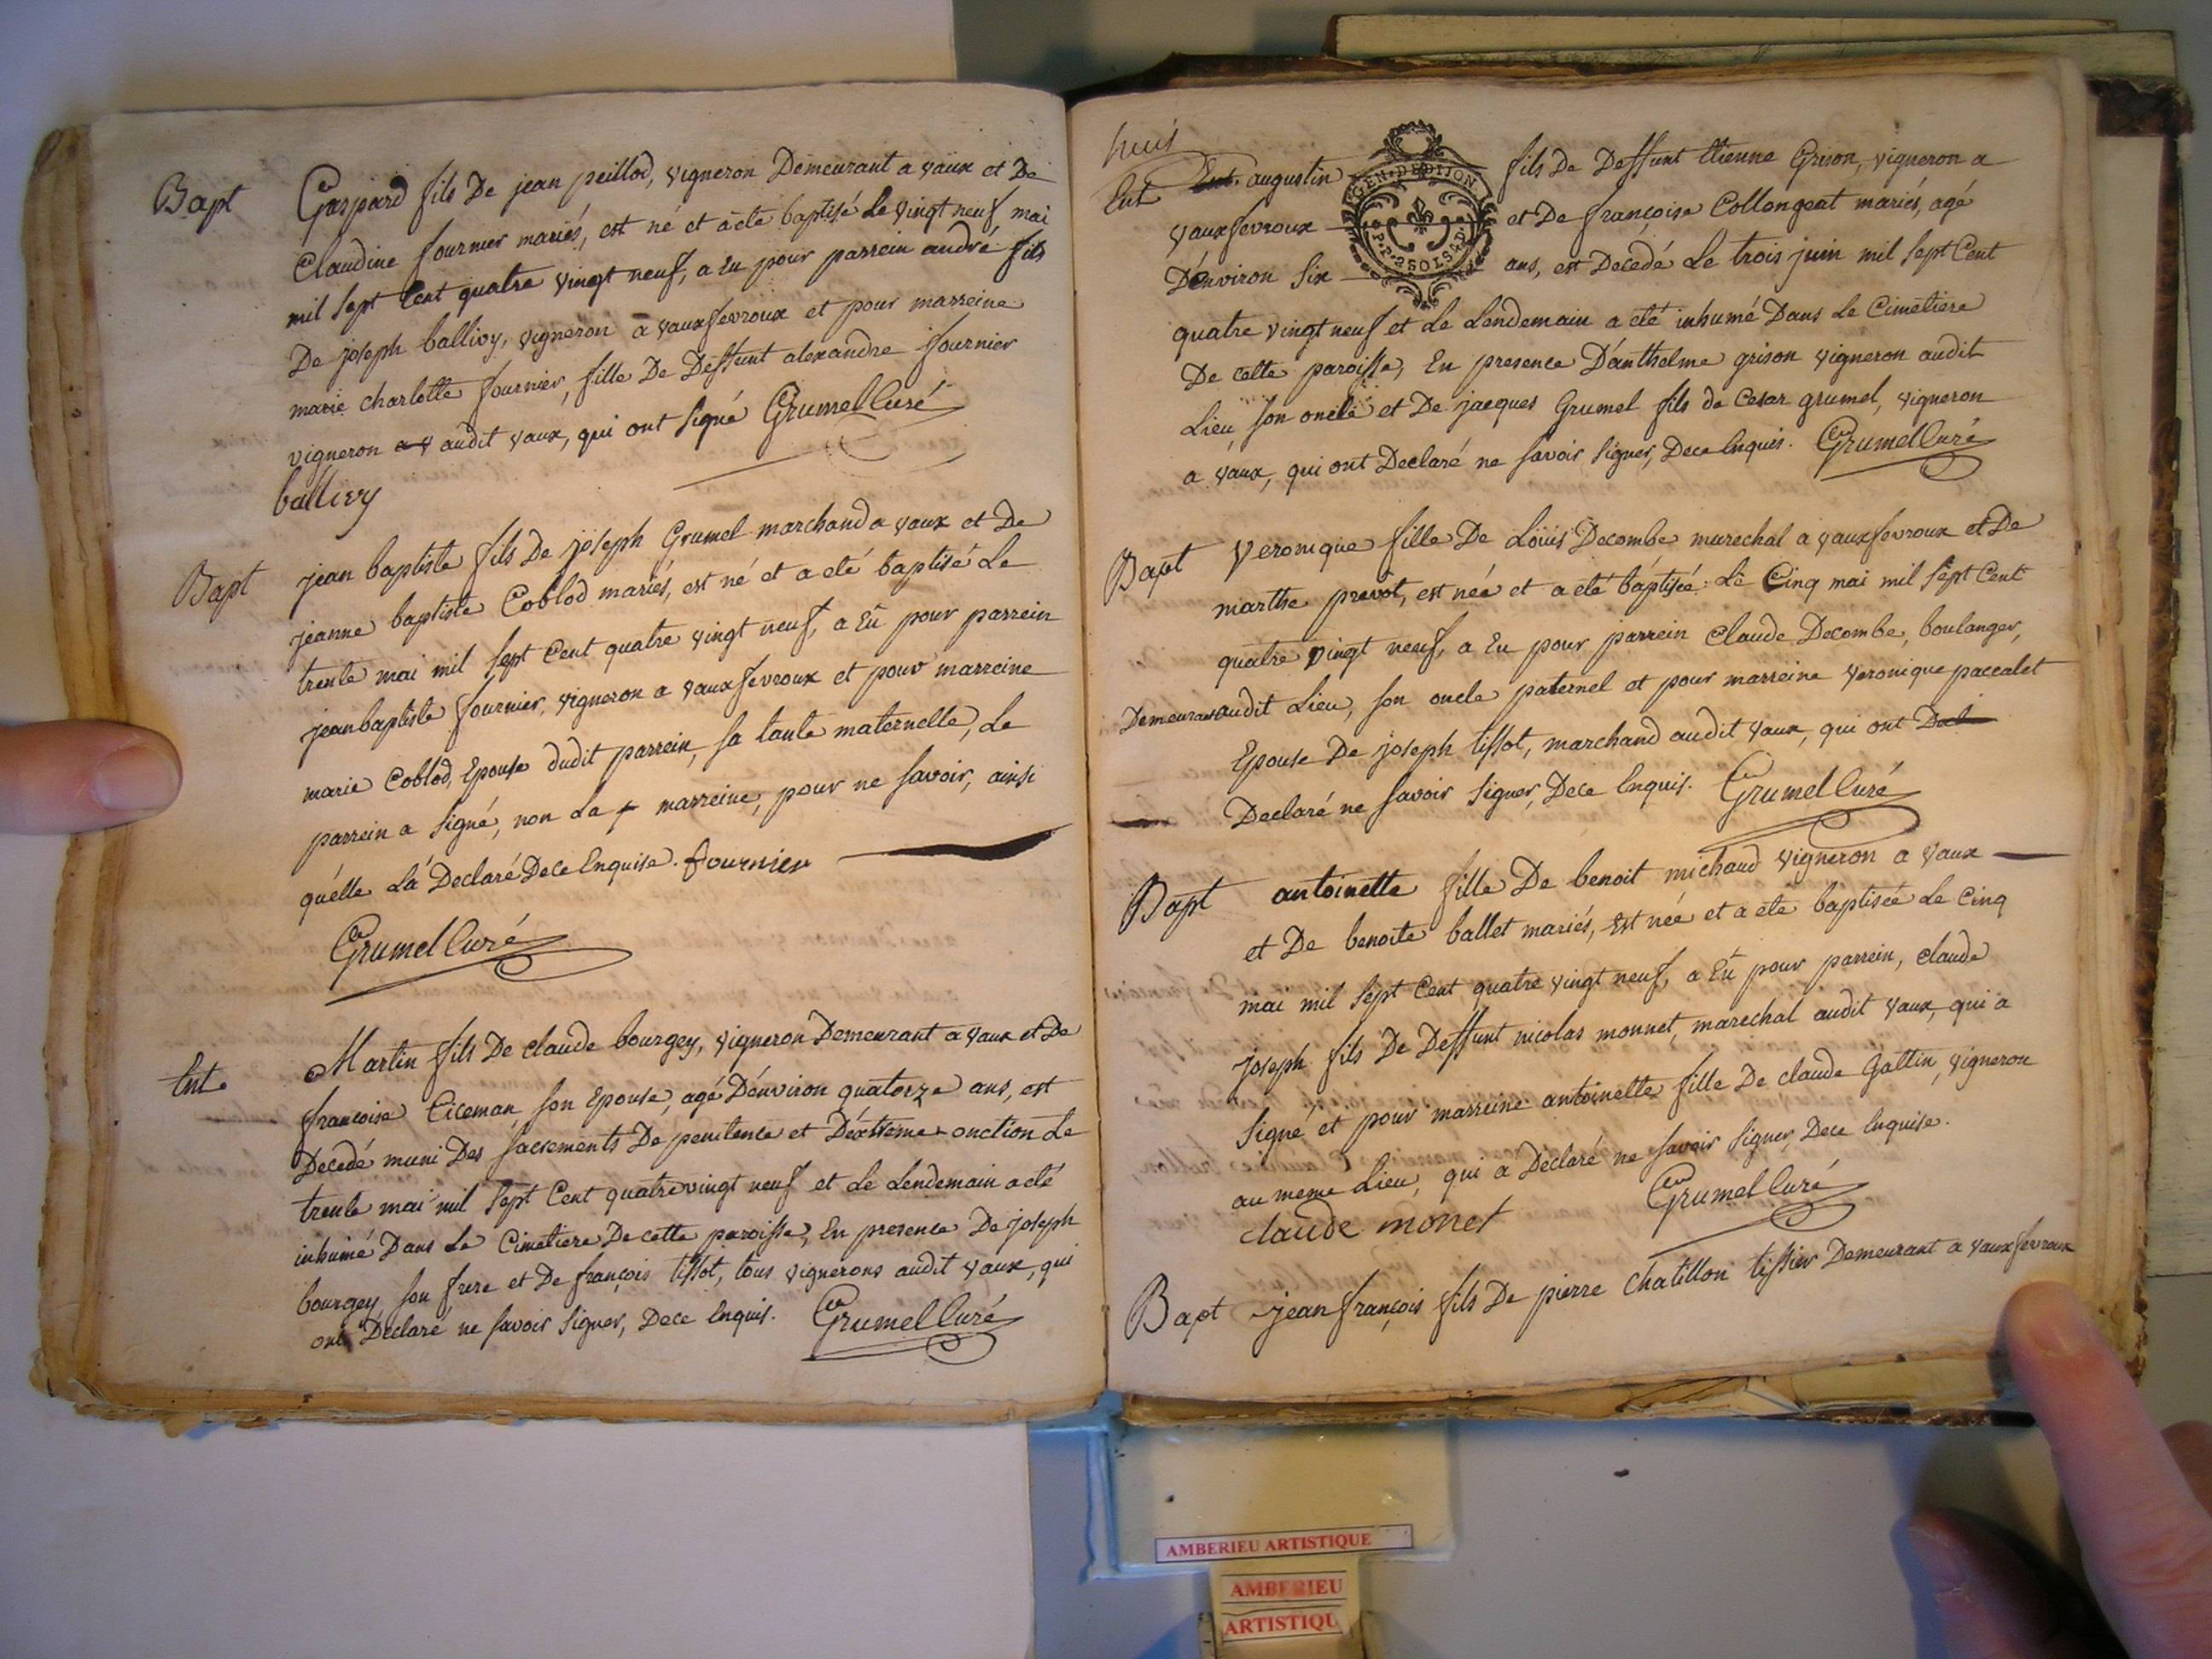 Bapt Gaspard fils De jean peillod, vigneron Demeurant a vaux et De
Claudine fournier mariés, est né et a eté baptisé Le vingt neuf mai
mil sept Cent quatre vingt neuf, a Eu pour parrein andré fils
De joseph ballivy, vigneron a vauxfevroux et pour marreine
marie charlotte fournier, fille De Deffunt alexandre fournier
vigneron a v audit vaux, qui ont signé Grumel Curé
ballivy
Bapt jean baptiste fils De joseph Grumel marchand a vaux et De
jeanne baptiste Coblod mariés, est né et a eté baptisé Le
trente mai mil sept Cent quatre vingt neuf, a Eu pour parrein
jeanbaptiste fournier, vigneron a vauxfevroux et pour marreine
marie Coblod, Epouse dudit parrein, sa tante maternelle, Le
parrein a signé, non La marreine, pour ne savoir, ainsi
qu'elle L'a Declaré De ce Enquise. fournier
Grumel Curé
Ent. Martin fils De claude bourgey, vigneron Demeurant a vaux et De
françoise Ciceman, son Epouse, agé D'environ quatorze ans, est
Decedé muni Des sacrements De penitence et D'extreme onction Le
trente mai mil sept Cent quatrevingt neuf et Le Lendemain a eté
inhumé Dans Le Cimetiere De cette paroisse, En presence De joseph
bourgey, son frere et De françois tissot, tous vignerons audit vaux, qui
ont Declaré ne savoir signer, De ce Enquis. Grumel Curé
huit
Ent Ent. augustin fils De Deffunt Etienne Grison, vigneron a
vauxfevroux et De françoise Collongeat mariés, agé
D'environ six ans, est Decedé Le trois juin mil sept Cent
GEN • DE DIJON
P. P. 2 SOLS 8 D.
quatre vingt neuf et Le Lendemain a eté inhumé Dans Le Cimetiere
De cette paroisse, En presence D'anthelme grison vigneron audit
Lieu, son oncle et De jacques Grumel fils de Cesar grumel, vigneron
a vaux, qui ont Declaré ne savoir signer, De ce Enquis. Grumel Curé
Bapt Veronique fille De Loüis Decombe marechal a vauxfevroux et De
marthe prevôt, est née et a eté baptisée Le Cinq mai mil sept Cent
quatre vingt neuf, a Eu pour parrein Claude Decombe, boulanger,
Demeurant audit Lieu, son oncle paternel et pour marreine veronique paccalet
Epouse De joseph tissot, marchand audit vaux, qui ont Decl
Declaré ne savoir signer, De ce Enquis. Grumel Curé
Bapt antoinette fille De benoit michaud vigneron a vaux
et De benoite ballet mariés, Est née et a eté baptisée Le Cinq
mai mil sept Cent quatre vingt neuf, a Eu pour parrein, claude
joseph fils De Deffunt nicolas monnet, marechal audit vaux, qui a
signé et pour marreine antoinette fille De claude Gattin, vigneron
au meme Lieu, qui a Declaré ne savoir signer, De ce Enquise.
claude monet Grumel Curé
Bapt jean françois fils De pierre Chatillon tissier Demeurant a vauxfevroux
AMBERIEU ARTISTIQUE
AMBERIEU
ARTISTIQU